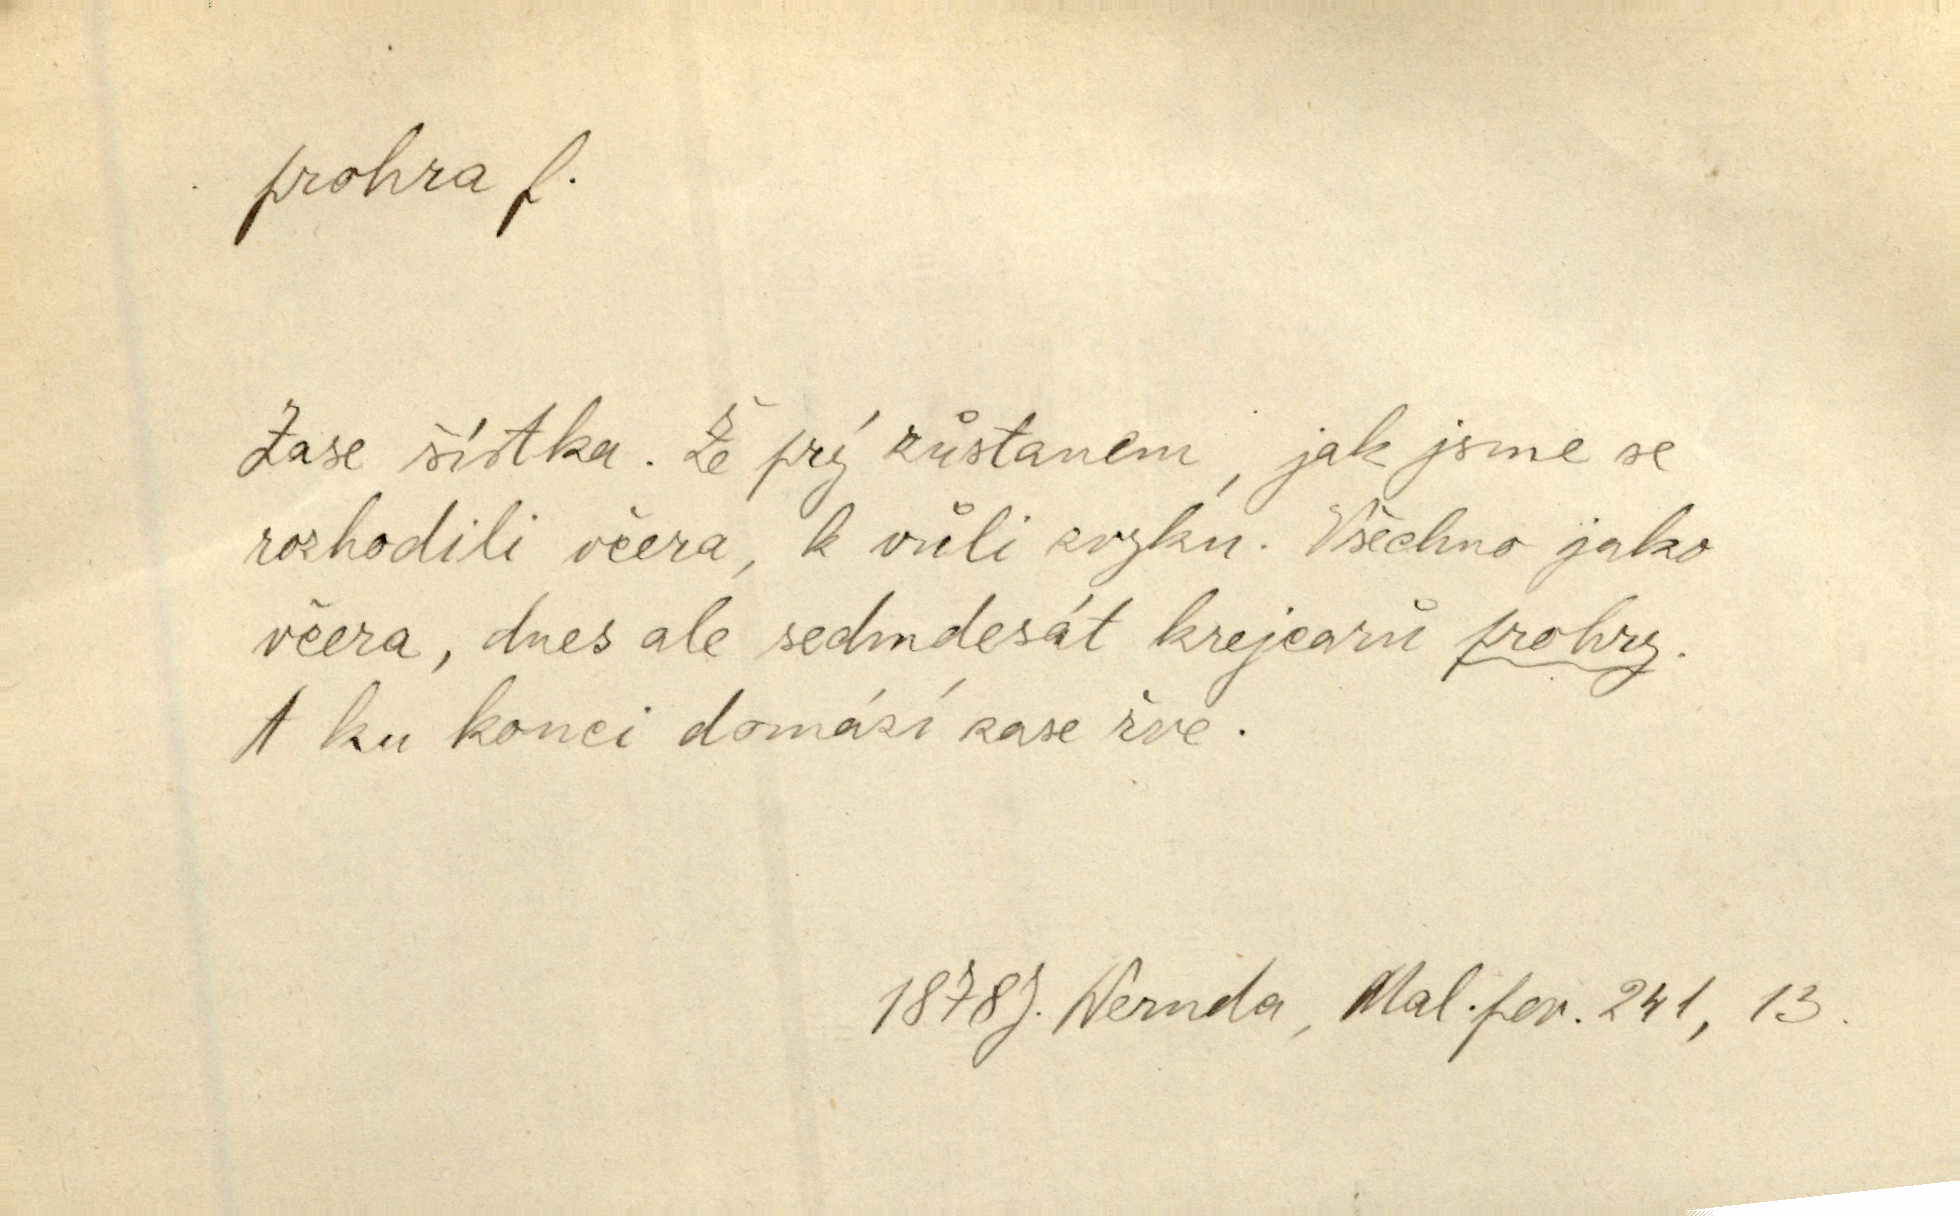 prohra f.
Zase šístka. Že prý zůstanem, jak jsme se
rozhodili včera, k vůli zvyku. Všechno jako
včera, dnes ale sedmdesát krejcarů prohry.
A ku konci domází zase řve.
1878 J. Neruda, Mal. pov. 241, 13.